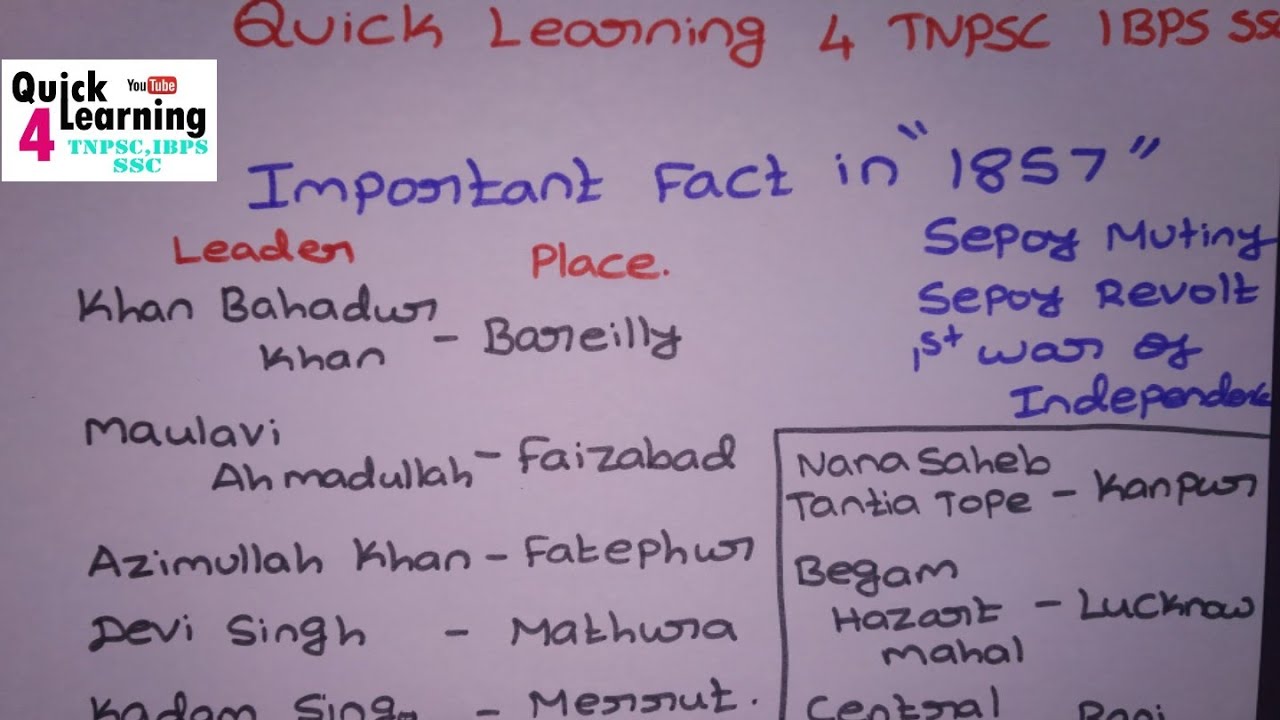 Quick Learning 4 TNPSC IBPS SSC
Quick
YouTube
4 Learning
TNPSC,IBPS
SSC
Important Fact in "1857"
Sepoy Mutiny
Sepoy Revolt
1st war of
Independence
Leader Place.
Khan Bahadur
Khan - Bareilly
Maulavi
Ahmadullah - Faizabad
Azimullah Khan - Fatephur
Devi Singh - Mathura
Kadam Singh - Merrut.
Nana Saheb
Tantia Tope - Kanpur
Begam
Hazart - Lucknow
Mahal
Central Rani